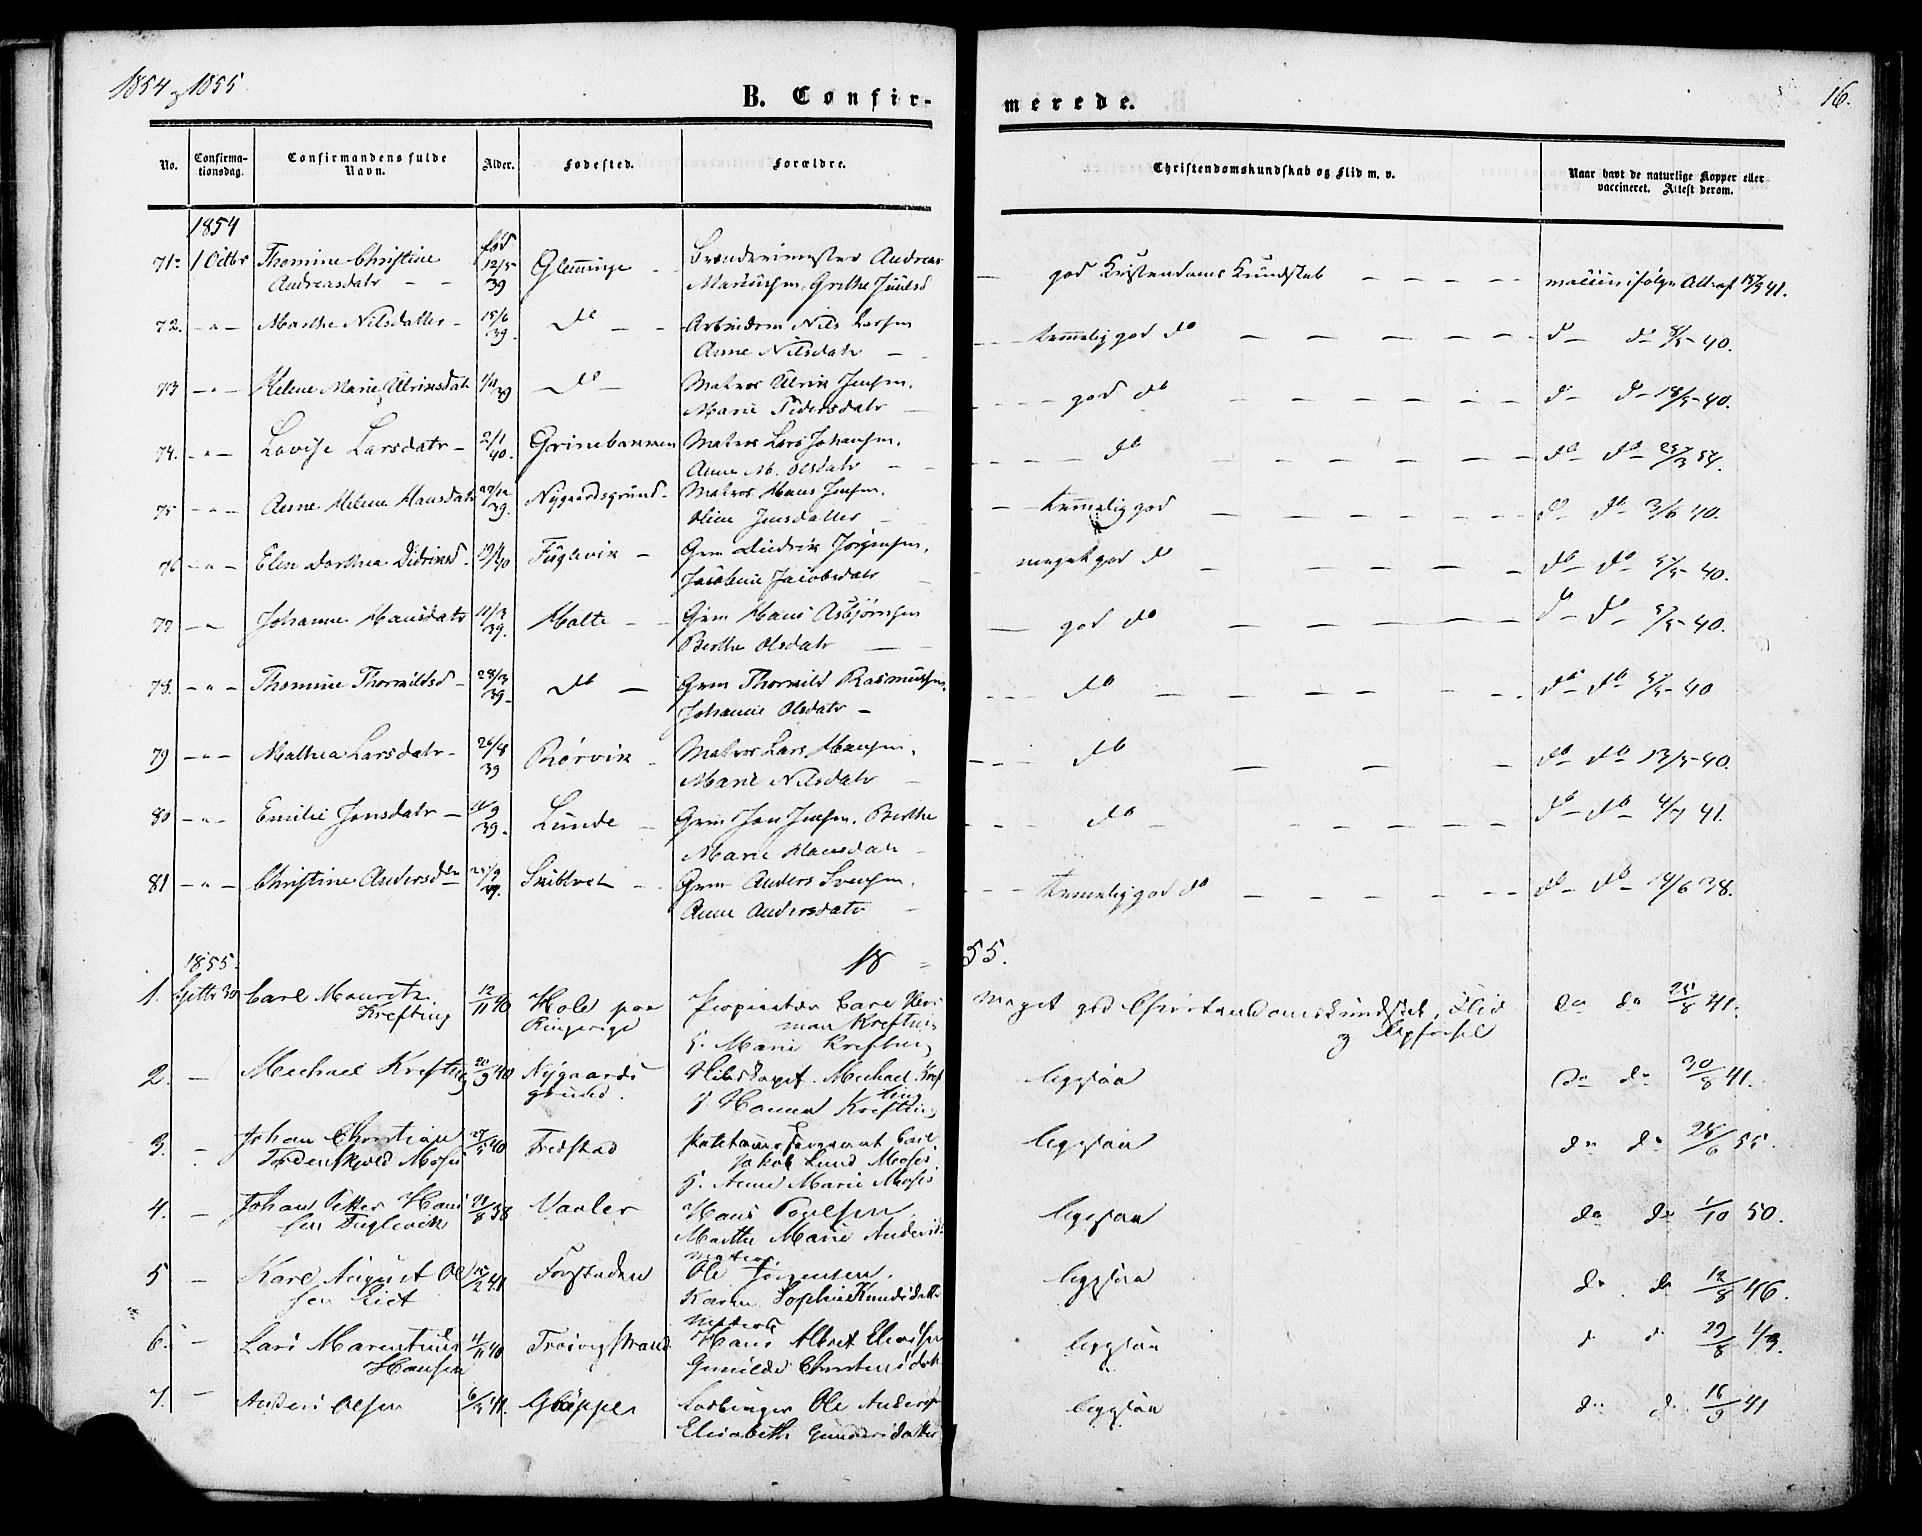 1854 & 1855.
B. Confir-
merede.
16.
No.
Confirma-
tionsdag.
Confirmandens fulde
Navn.
Alder.
Fødested.
Forældre.
Christendomskundskab og Flid m. v.
Naar havt de naturlige Kopper eller
vaccineret. Attest derom.
1854
71. 1 Octbr Thomine Christine Andreasdatr født 12/5 39 Glemminge Andreas Mariussen, Grethe Juulsd god Kristendoms Kundskab Att. af 41.
72. - " - Marthe Nilsdatter 15/6 39. do Nils Larsen Anne Nilsdatr temmelig god do do do 8/5 40.
73 - " - Helene Marie Ulriksdatr 1/11 39 do Matros Ulrik Jensen, Marie Pedersdatr god do do do 18/5 40.
74. - " - Lovise Larsdatr 2/1 40. Matros Lars Johansen, Anne M. Olsdatr do do do 54.
75 - " - Anne Helene Hansdatr 27/12 39. Nygaardsgrund Matros Hans Jensen, Oline Jensdatter temmelig god do do 3/6 40.
76 - " - Elen Dorthea Didriksd. 40 Fuglevik Grm Diedrik Jørgensen, Jacobine Jacobsdatr meget god do do do 5/5 40.
77 - " Johanne Hansdatr 11/3 39. Holte Grm Hans Asbjørnsen Berthe Olsdatr god do do do 5/5 40.
78. - " - Thomine Thorvildsd 28/3 39. do Grm Thorvild Rasmussen, Johanne Olsdatr do do do 5/5 40
79 - " - Mathea Larsdatr 26/8 39 Rørvik Matros Lars Hansen, Marie Nilsdatr do do do 13/5 40.
80 - " - Emilie Jonsdatr 39. Lunde Grm Jon Jensen, Berthe Marie Hansdatr do do do 4/7 41.
81 - " - Christine Andersdtr 25/9 39. Skibtvet Grm Anders Svensen, Anne Andersdatr temmelig god do do do 14/6 38.
1855.
18 - 55.
1. Septbr 30 Carl Mauritz Krefting 12/11 40 Hole paa Ringerige Proprietær Carl Herman Krefting & Marie Krefting Meget god Christendomskundskab, Flid & Opførsel do do 25/8 41.
2. - Michael Krefting 20/9 40 Nygaardsgrund. Skibskapt. Michael Krefting & Hanna Krefting ligesaa do do 30/8 41.
3. - Johan Christian Tordenskjold Moses 27/5 40 Fredstad Carl Jakob Lund Moses, & Anne Marie Moses ligesaa do do 28/6 55.
4. - Johan Petter Hansen Fuglevik 21/8 38 Vaaler Hans Poulsen, Marthe Marie Andersd. ligesaa do do 1/10 50.
5 - Karl August Olsen Eiet 18/2 41 Forstaden Matros Ole Jørgensen, Karen Sophie Knudsdatr ligesaa do do 12/8 46.
6. - Lars Marentius Hansen 4/11 40 Trosvigstrand Matros Hans Albret Eliassen Gunilde Christensdatr ligesaa do do 29/8 43.
7. - Anders Olsen 6/3 41. Gluppen Ole Anders. Elisabeth Gundersdatter ligesaa do do 16/9 41